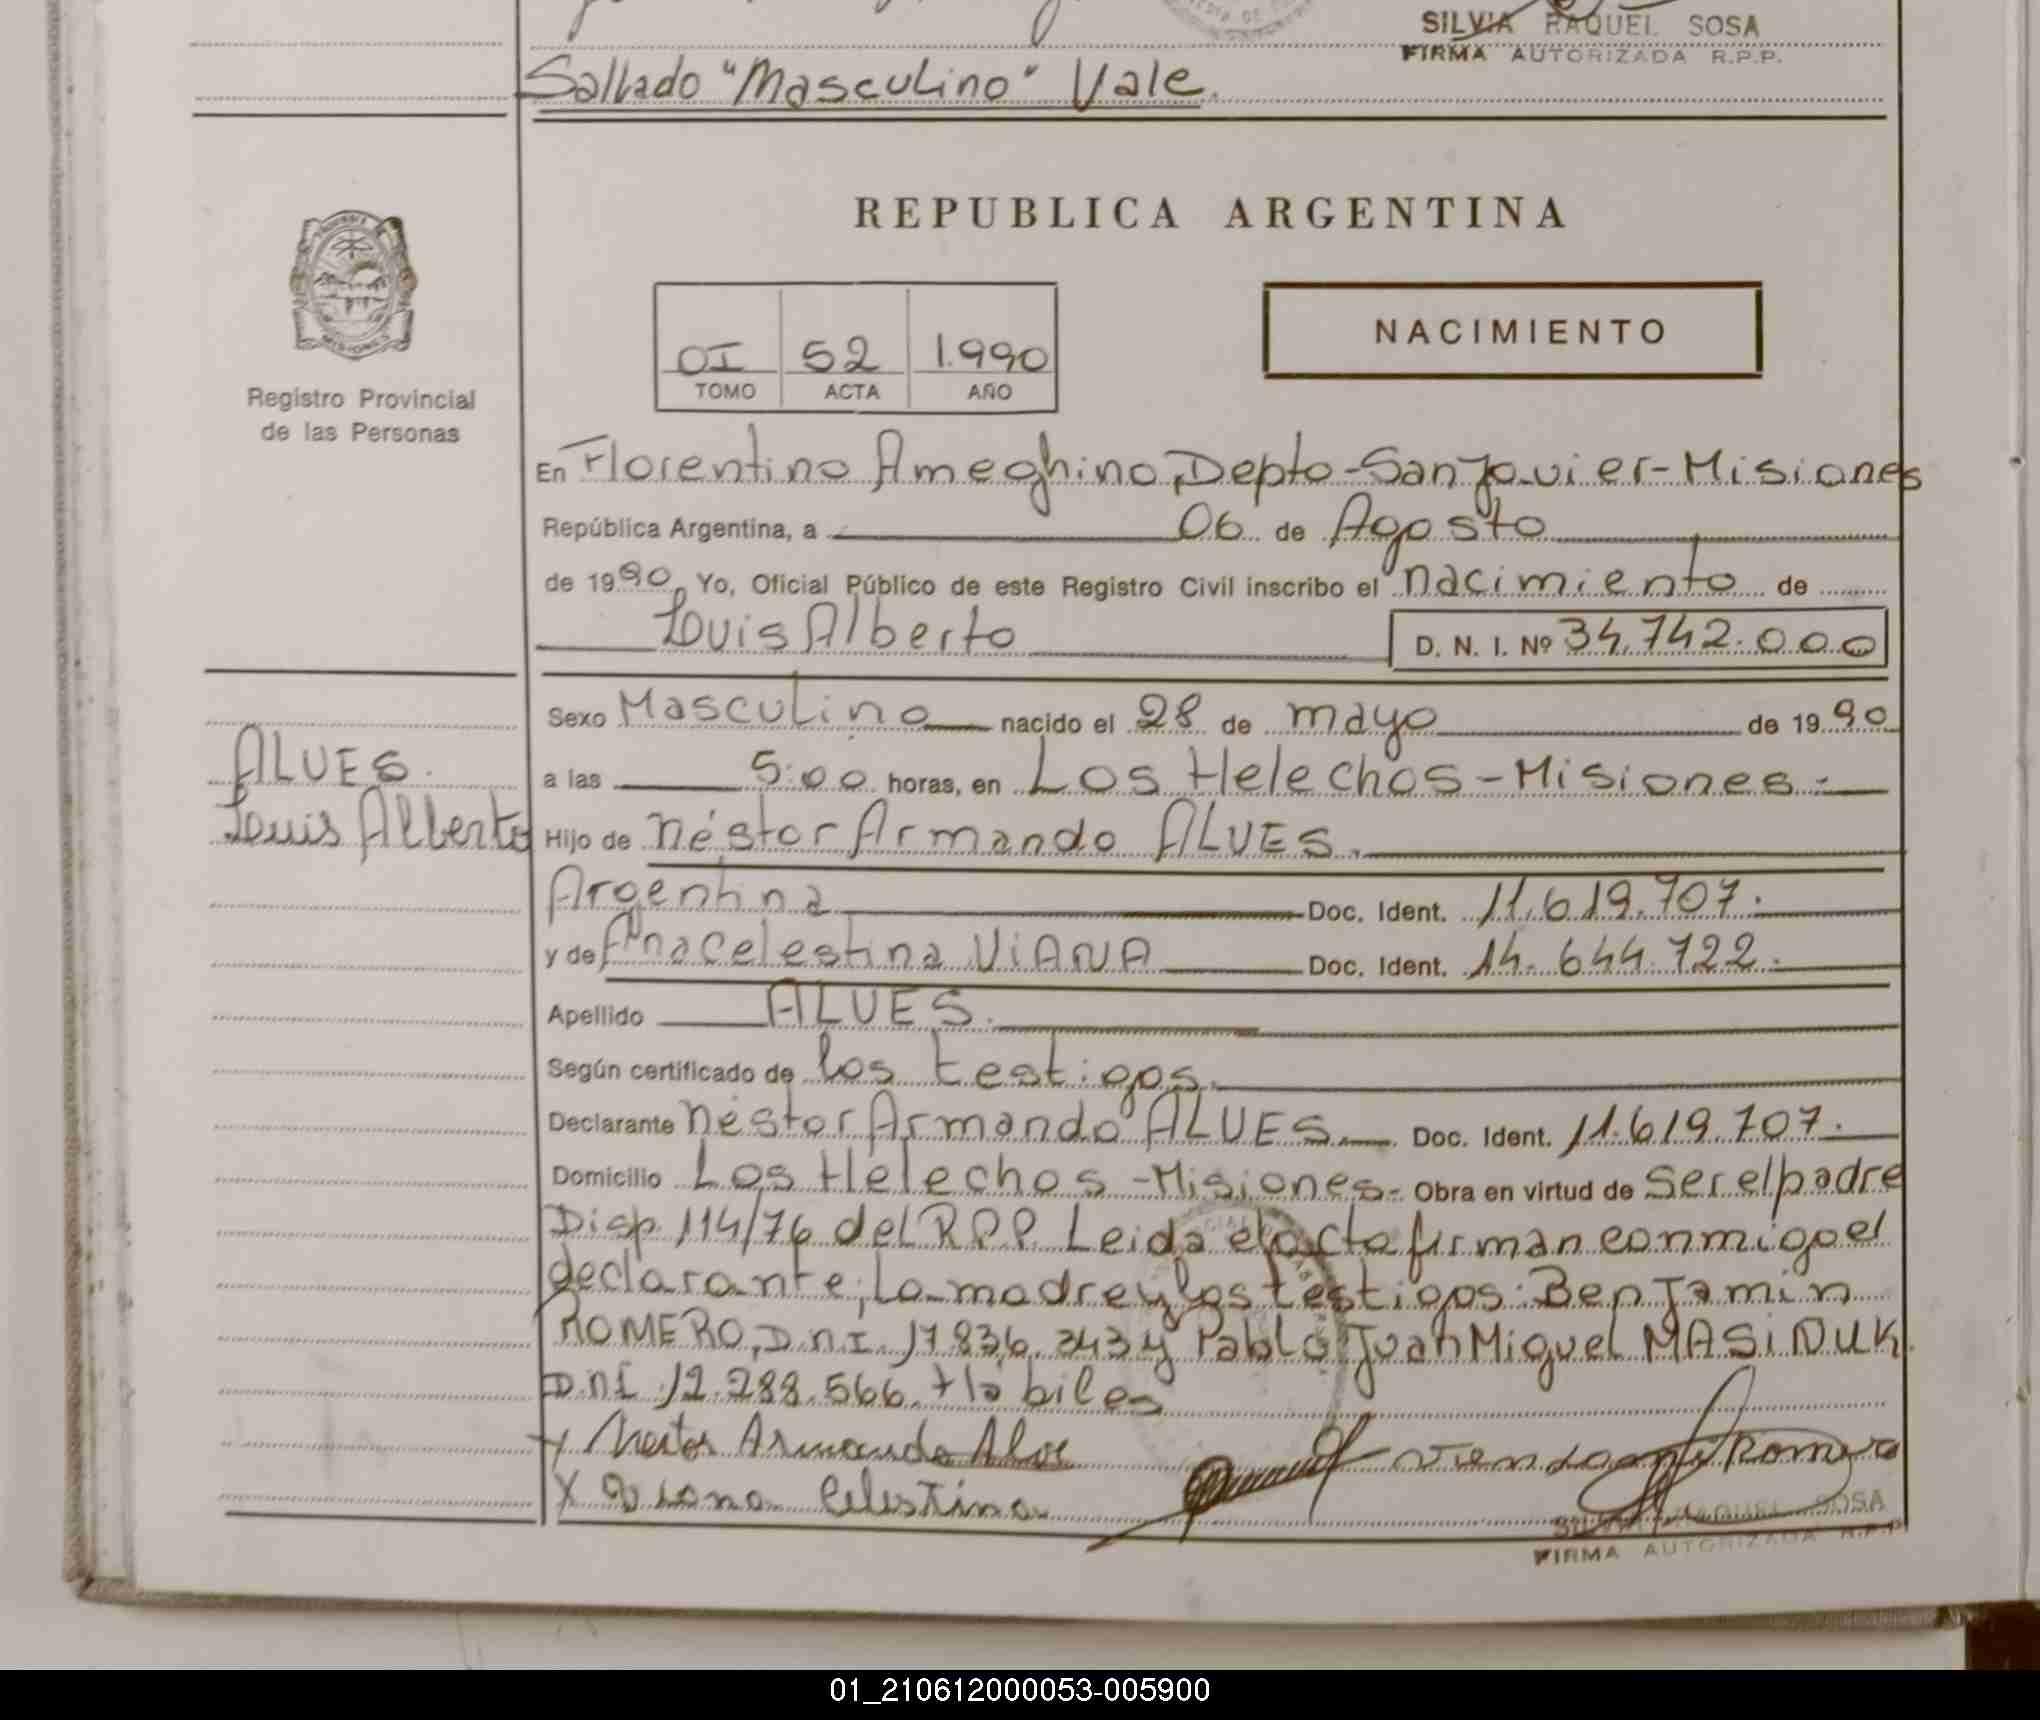 SILVIA RAQUEL SOSA
FIRMA AUTORIZADA R.P.P.
Sallado "Masculino" Vale.
REPUBLICA ARGENTINA
NACIMIENTO
OI 52 1.990
TOMO ACTA AÑO
MISIONES
Registro Provincial
de las Personas
En Florentino Ameghino, Depto-San Javier-Misiones
República Argentina, a 06 de Agosto
de 1990, Yo, Oficial Público de este Registro Civil inscribo el nacimiento de
Louis Alberto D. N. I. Nº 34.742.000
Sexo Masculino nacido el 28 de mayo de 1990
ALVES.
Louis Alberto
a las 5:00 horas, en Los Helechos-Misiones.-
Hijo de Néstor Armando ALVES.
Argentina Doc. Ident. 11.619.707.
y de Ana celestina ViANA Doc. Ident. 14.644.722.
Apellido ALVES.
Según certificado de los testigos.
Declarante Néstor Armando ALVES. Doc. Ident. 11.619.707.
Domicilio Los Helechos-Misiones- Obra en virtud de ser el padre
Disp. 114/76 del R.P.P. Leida el acta firman conmigo el
declarante, la madre y los testigos: Benjamin
ROMERO, D.n.I. 17.836.343 y Pablo Juan Miguel MASiNUK
D.nI 12.288.566. Habiles
x Nestor Armando Alve
X Viana Celestina
Romero
RAQUEL SOSA
FIRMA AUTORIZADA R.P.P
01_210612000053-005900